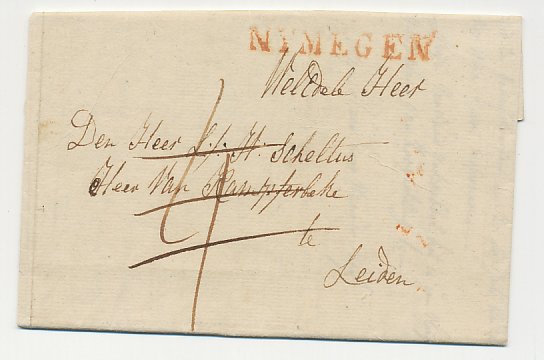 NYMEGEN
WelEdele Heer
Den Heer L: H. Scheltus
Heer Van Kampferbeke
te
Leiden